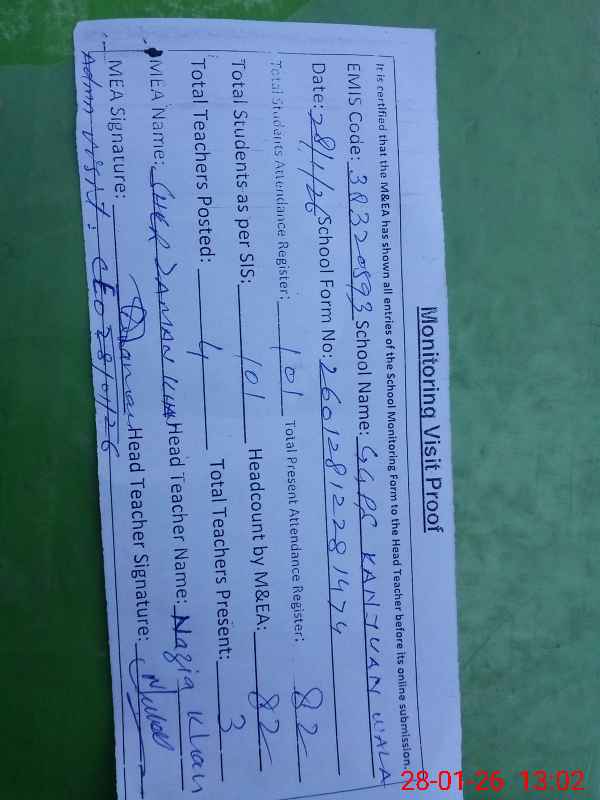 Monitoring Visit Proof
It is certified that the M&EA has shown all entries of the School Monitoring Form to the Head Teacher before its online submission.
EMIS Code: 38320893 School Name: GGPS KANJUAN WALA
Date: 28/1/26 School Form No: 26012812281474
Total Students Attendance Register: 101 Total Present Attendance Register: 82
Total Students as per SIS: 101 Headcount by M&EA: 82
Total Teachers Posted: 4 Total Teachers Present: 3
MEA Name: SHER ZAMAN KHA Head Teacher Name: Nazia Khan
MEA Signature: Head Teacher Signature:
Admn visit: CEO 28/01/26
28-01-26 13:02